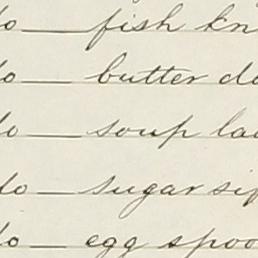 do — fish kn
do — butter d
do — soup la
do — sugar si
do — egg spoo